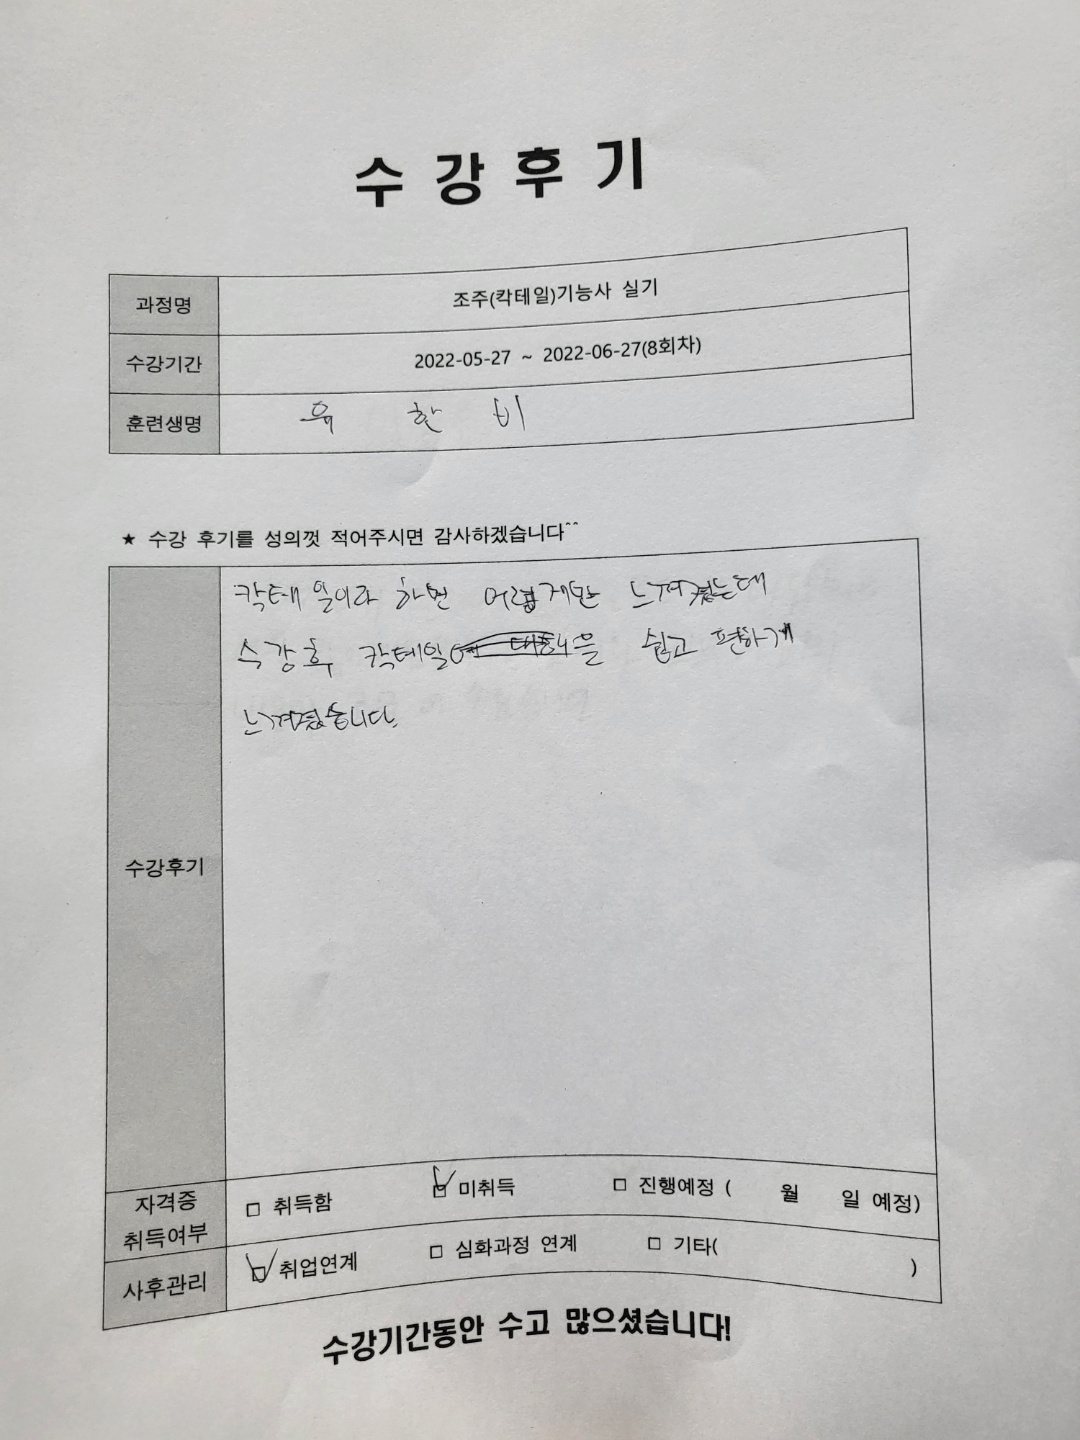 수 강 후 기
과정명 조주(칵테일)기능사 실기
수강기간 2022-05-27 ~ 2022-06-27(8회차)
훈련생명 유 한 비
★ 수강 후기를 성의껏 적어주시면 감사하겠습니다^^
칵테일이라 하면 어렵게만 느껴졌는데
수강후 칵테일을 쉽고 편하게
느껴졌습니다.
수강후기
자격증 취득여부 □ 취득함 □ 미취득 □ 진행예정 ( 월 일 예정)
사후관리 □ 취업연계 □ 심화과정 연계 □ 기타( )
수강기간동안 수고 많으셨습니다!